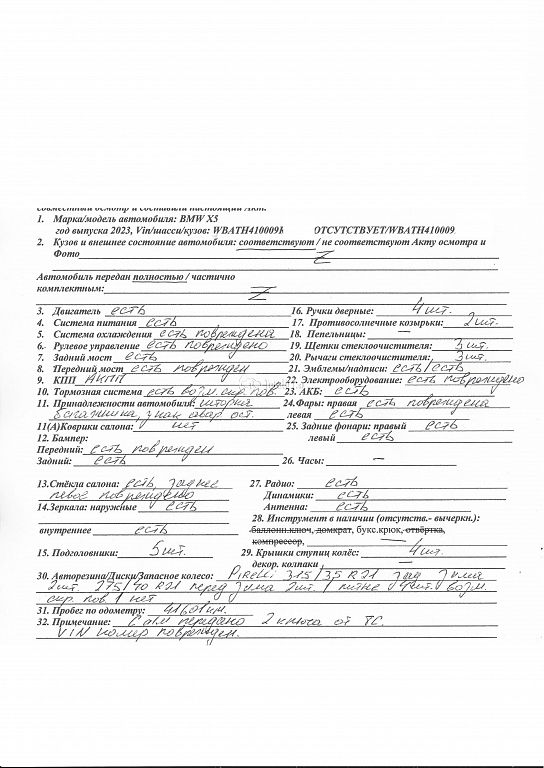 совместный осмотр и составили настоящий Акт.
1. Марка/модель автомобиля: BMW X5
год выпуска 2023, Vin/шасси/кузов: WBATH410009 ОТСУТСТВУЕТ/WBATH410009
2. Кузов и внешнее состояние автомобиля: соответствуют / не соответствуют Акту осмотра и
Фото Z
Автомобиль передан полностью / частично
комплектным: Z
3. Двигатель есть 16. Ручки дверные: 4 шт.
4. Система питания есть 17. Противосолнечные козырьки: 2 шт.
5. Система охлаждения есть повреждена 18. Пепельницы: —
6. Рулевое управление есть повреждено 19. Щетки стеклоочистителя: 3 шт.
7. Задний мост есть 20. Рычаги стеклоочистителя: 3 шт.
8. Передний мост есть поврежден 21. Эмблемы/надписи: есть/есть
9. КПП АКПП 22. Электрооборудование: есть повреждено
10. Тормозная система есть возм. скр. пов. 23. АКБ: есть
11. Принадлежности автомобиля: шторка 24.Фары: правая есть повреждена
багажника, знак авар. ост. левая есть
11(А)Коврики салона: нет 25. Задние фонари: правый есть
12. Бампер: левый есть
Передний: есть поврежден
Задний: есть 26. Часы: —
13.Стёкла салона: есть, заднее 27. Радио: есть
левое повреждено Динамики: есть
14.Зеркала: наружные есть Антенна: есть
28. Инструмент в наличии (отсутств.- вычеркн.):
внутреннее есть баллонн.ключ, домкрат, букс.крюк, отвёртка,
компрессор, —
15. Подголовники: 5 шт. 29. Крышки ступиц колёс: 4 шт.
декор. колпаки —
30. Авторезина/Диски/Запасное колесо: Pirelli 315/35 R21 зад зима
2шт. 275/40 R21 перед зима 2шт. / литые 4шт. возм.
скр. пов / нет
31. Пробег по одометру: км.
32. Примечание: С а/м передано 2 ключа от ТС.
VIN номер поврежден.